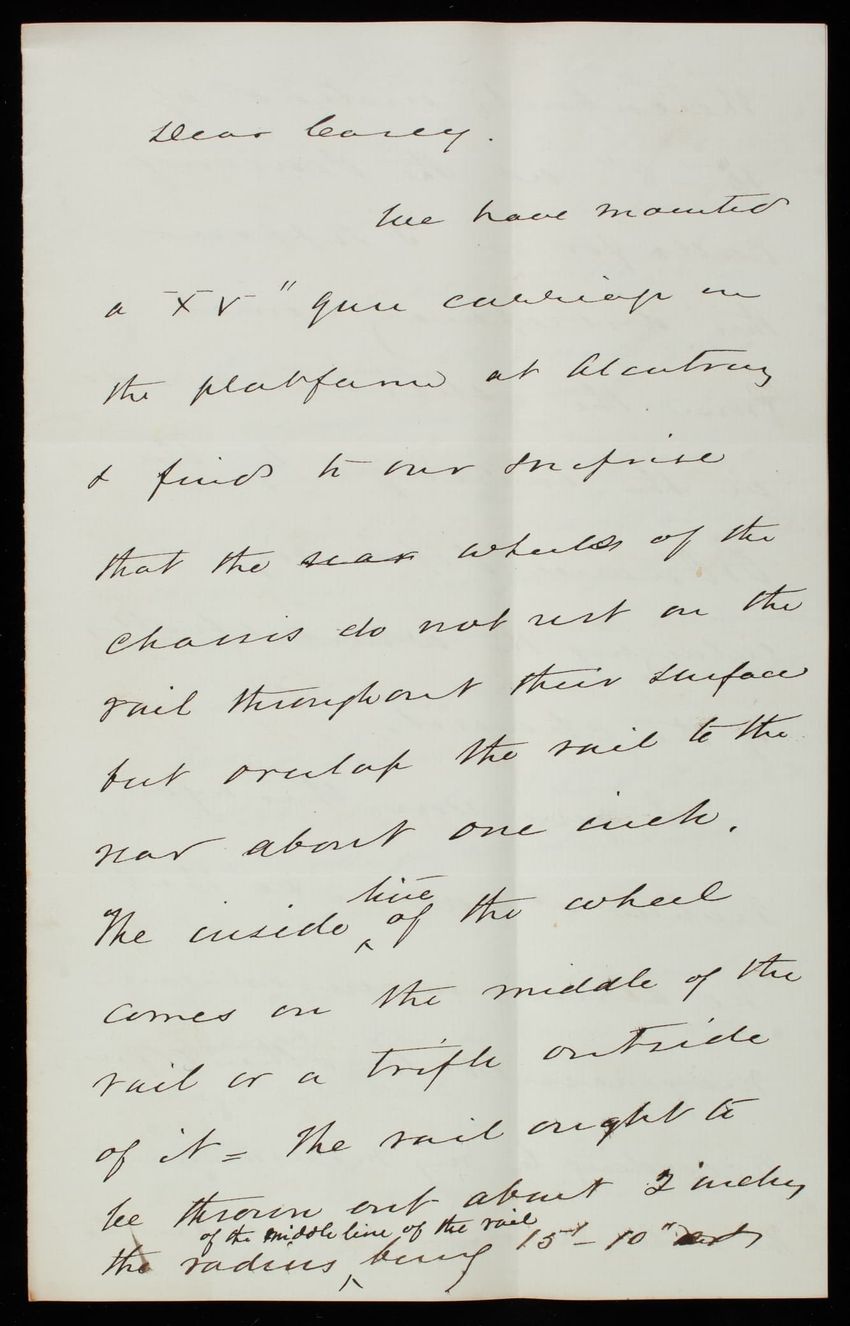 Dear Casey.
We have mounted
a XV" gun carriage on
the platform at Alcatraz
& find to our surprise
that the rear wheels of the
chassis do not rest on the
rail throughout their surface
but overlap the rail to the
rear about one inch.
The inside line of the wheel
comes on the middle of the
rail or a trifle outside
of it = The rail ought to
be thrown out about 2 inches
of the middle line of the rail
the radius being 15' - 10"